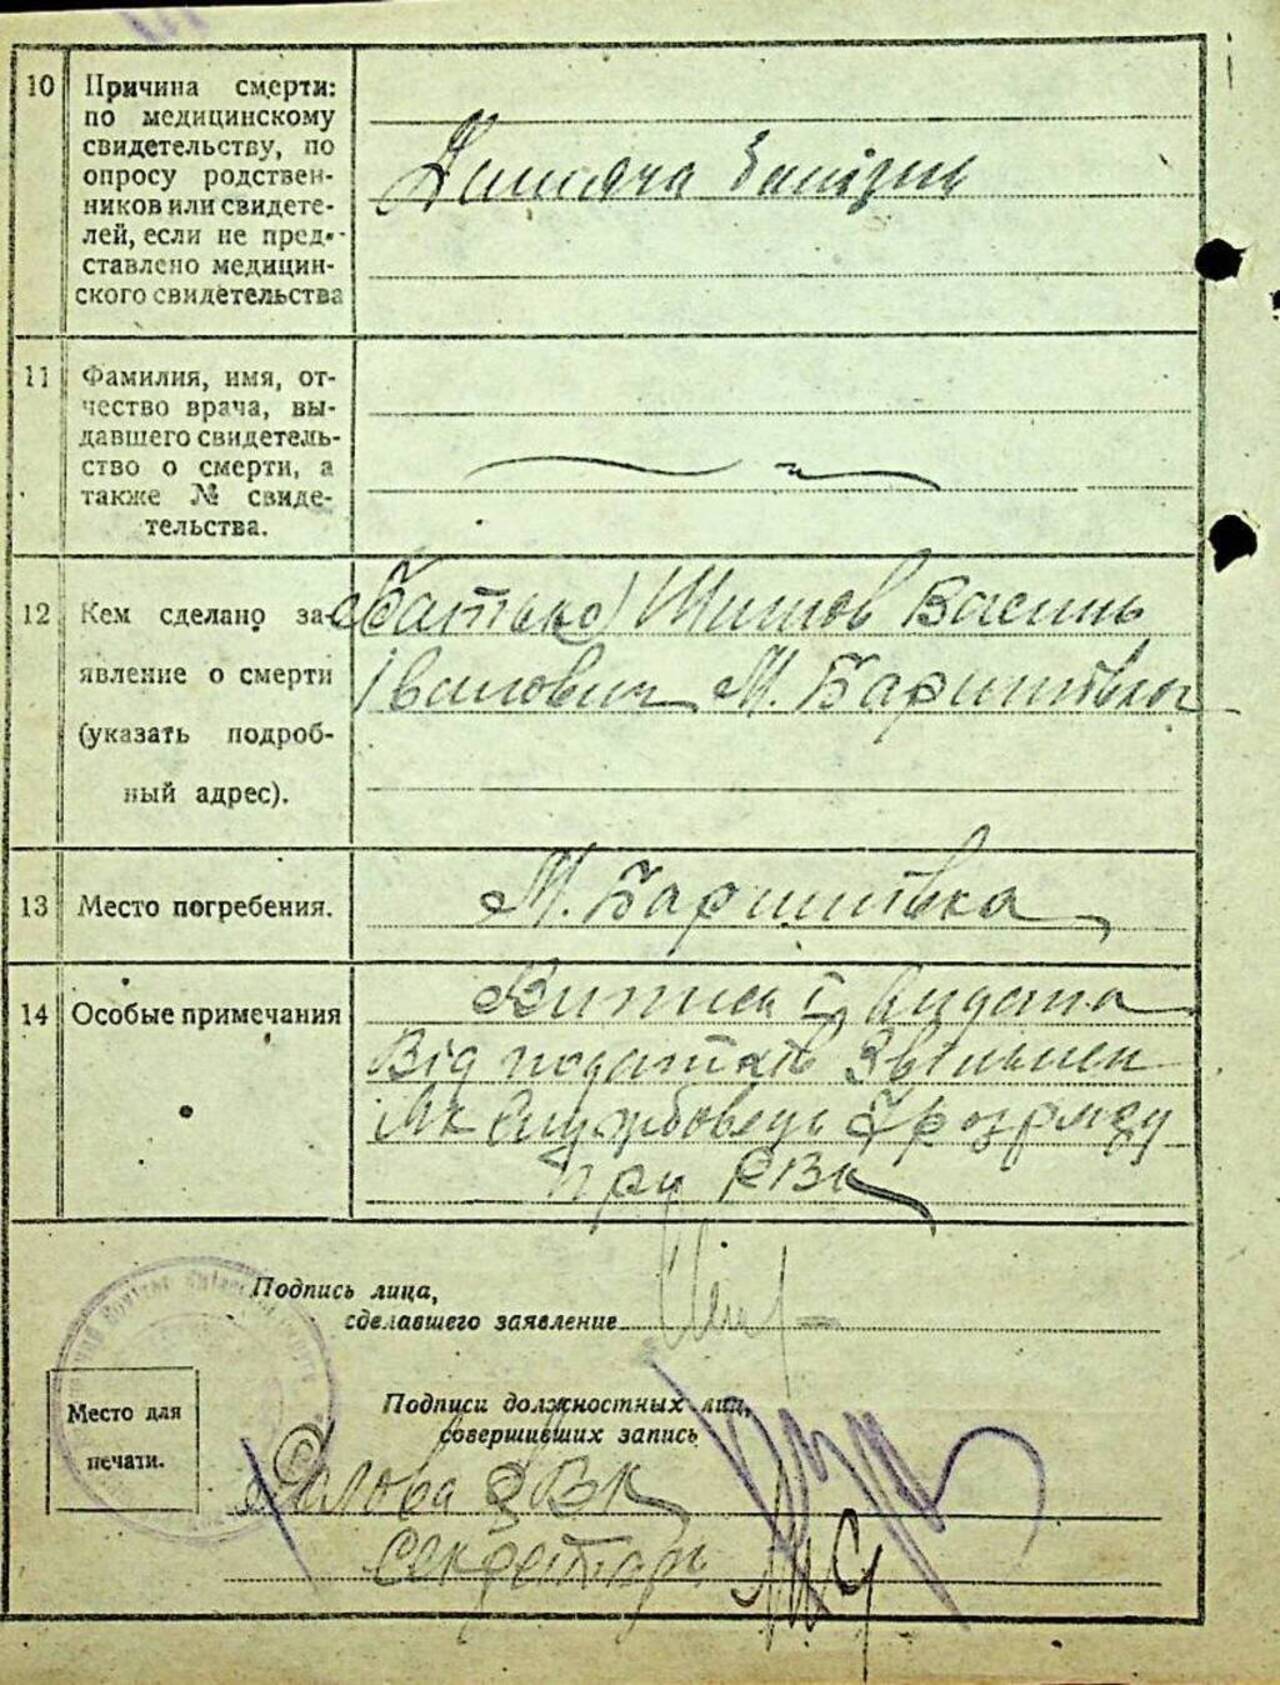 10
Причина смерти:
по медицинскому
свидетельству, по
опросу родствен-
ников или свидете-
лей, если не пред-
ставлено медицин-
ского свидетельства
11
Фамилия, имя, от-
чество врача, вы-
давшего свидетель-
ство о смерти, а
также № свиде-
тельства.
12
Кем сделано за-
явление о смерти
(указать подроб-
ный адрес).
(Батько) Шитов Василь
Іванович М. Баришівка
13
Место погребения.
М. Баришівка
14
Особые примечания
видана
Від податків Звільнен
Як Службовець
при РВК
Подпись лица,
сделавшего заявление
Место для
печати.
Подписи должностных лиц,
совершивших запись
Голова РВК
Секретарь